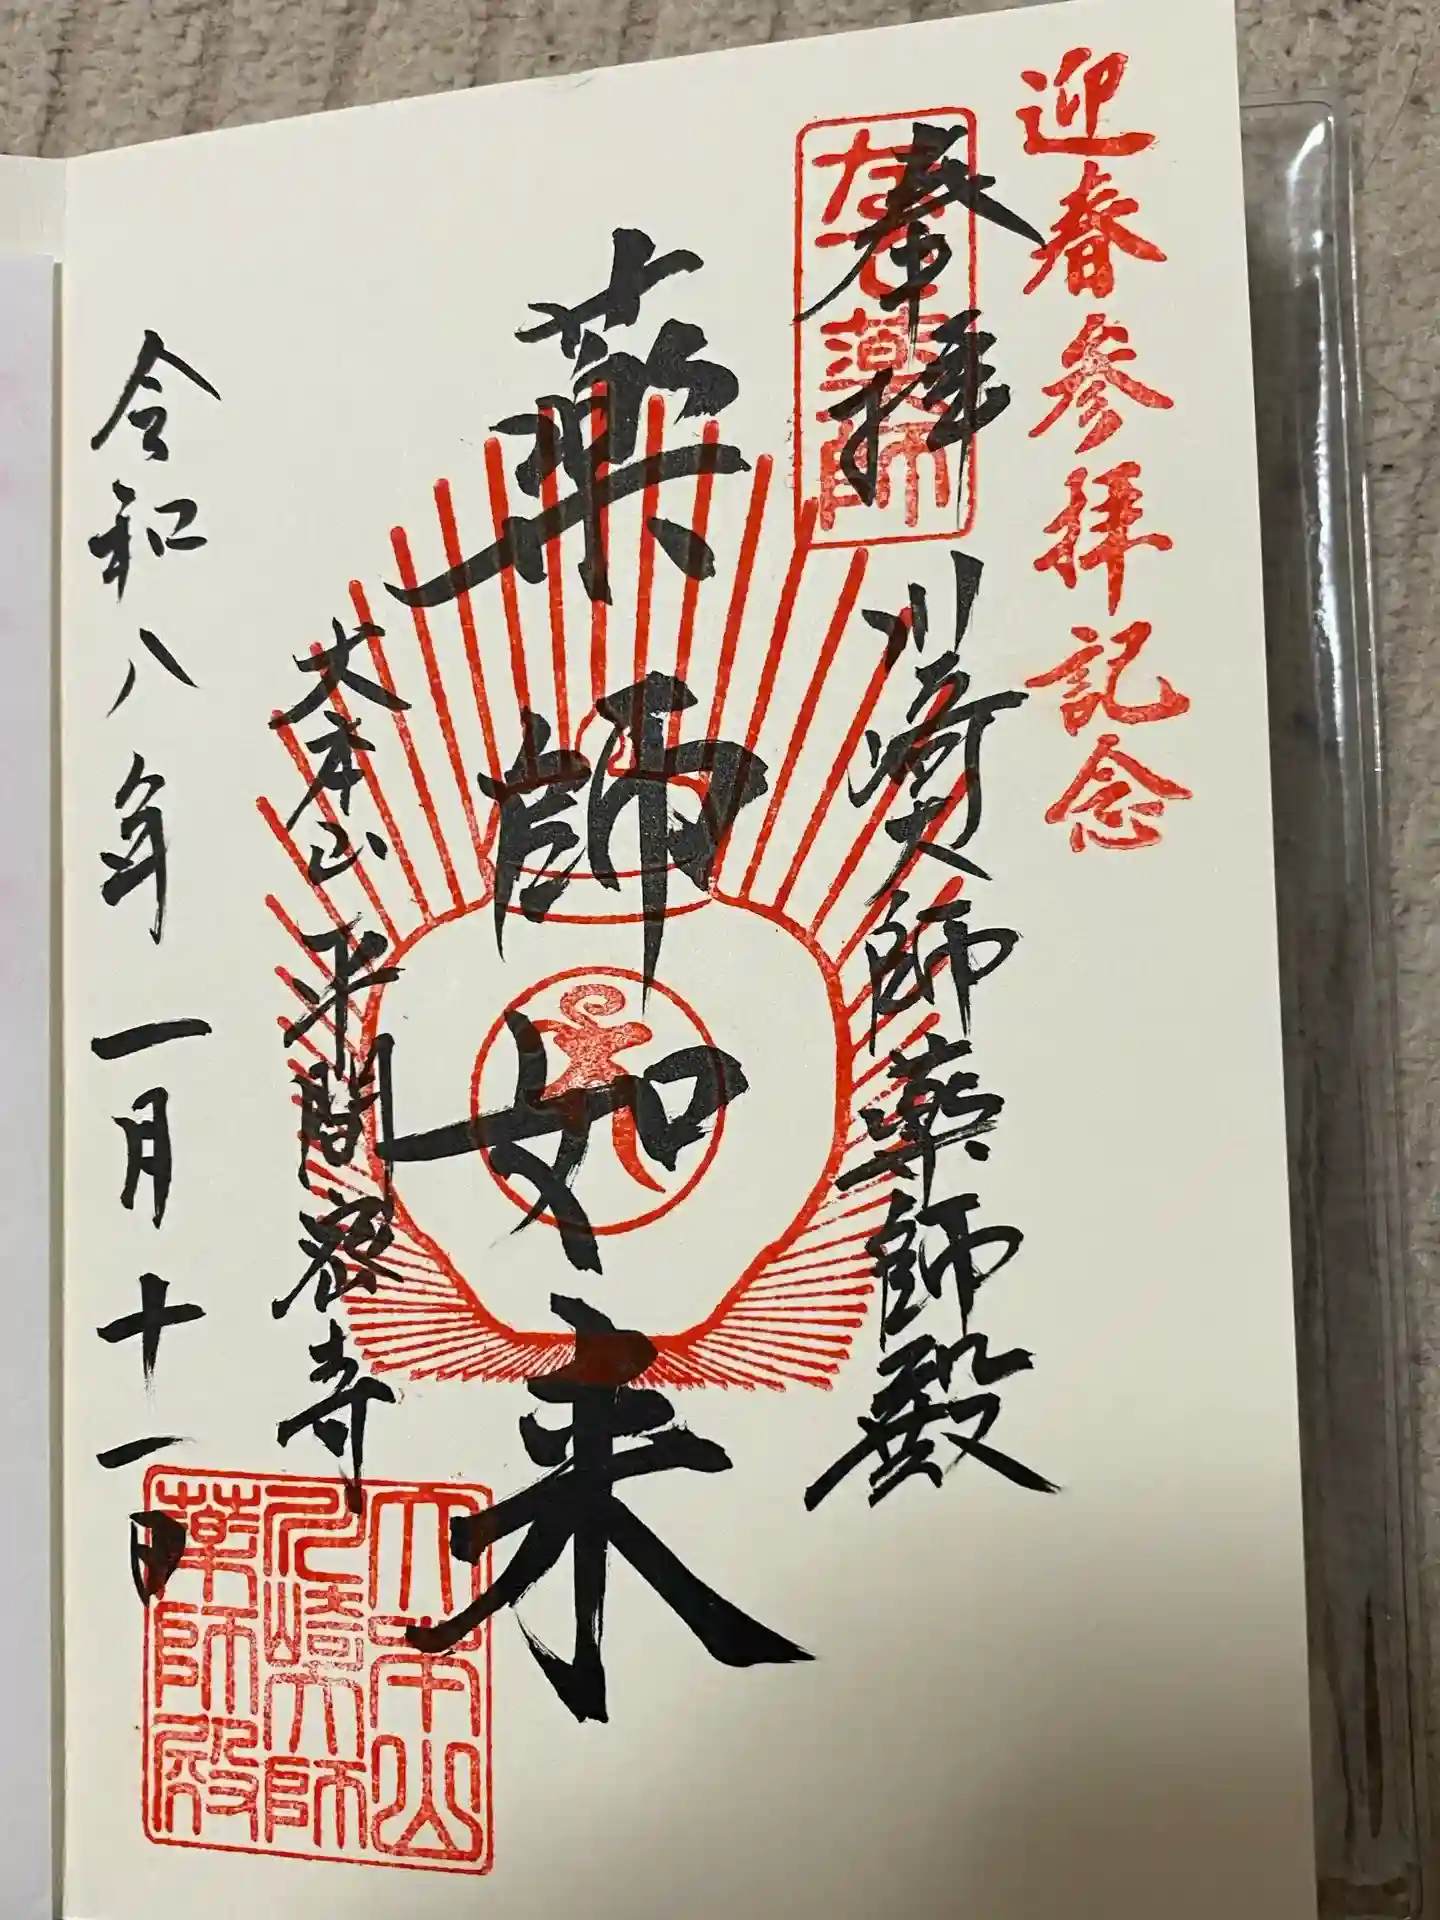 迎春参拝記念
奉拝
なで薬師
川崎大師薬師殿
薬師如来
大本山 平間寺
令和八年一月十一日
大本山
川崎大師
薬師殿